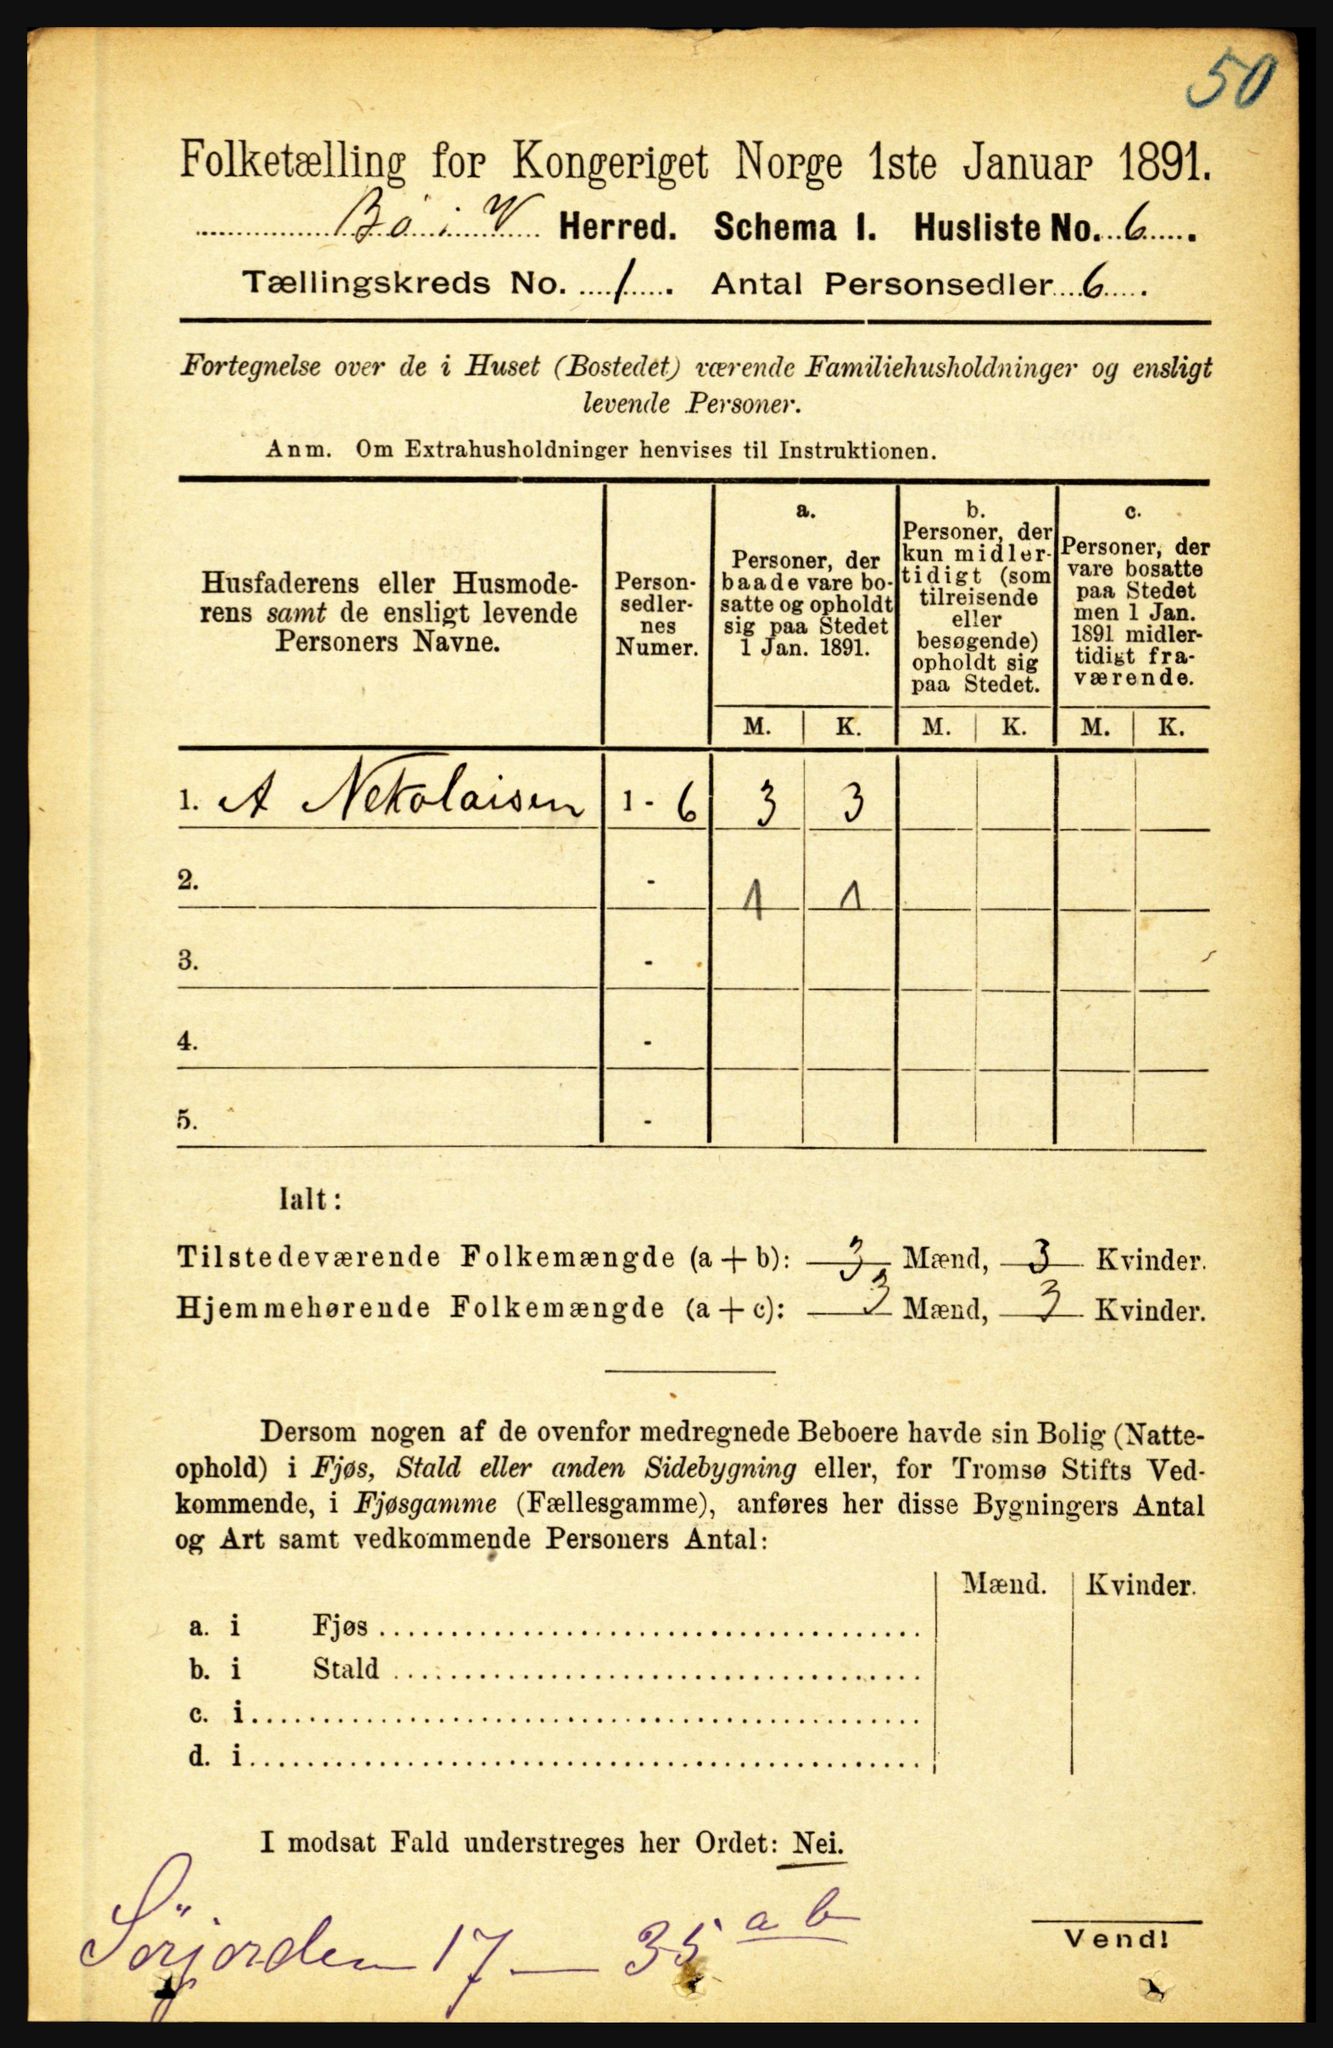 50
Folketælling for Kongeriget Norge 1ste Januar 1891.
Bö i V Herred. Schema I. Husliste No. 6.
Tællingskreds No. 1. Antal Personsedler 6.
Fortegnelse over de i Huset (Bostedet) værende Familiehusholdninger og ensligt
levende Personer.
Anm. Om Extrahusholdninger henvises til Instruktionen.
Husfaderens eller Husmode-
rens samt de ensligt levende
Personers Navne.
Person-
sedler-
nes
Numer.
a.
Personer, der
baade vare bo-
satte og opholdt
sig paa Stedet
1 Jan. 1891.
b.
Personer, der
kun midler-
tidigt (som
tilreisende
eller
besøgende)
opholdt sig
paa Stedet.
c.
Personer, der
vare bosatte
paa Stedet
men 1 Jan.
1891 midler-
tidigt fra-
værende.
M. K. M. K. M. K.
1. A Nekolaisen 1 - 6 3 3
2. - 1 1
3. -
4. -
5. -
Ialt:
Tilstedeværende Folkemængde (a + b): 3 Mænd, 3 Kvinder.
Hjemmehørende Folkemængde (a + c): 3 Mænd, 3 Kvinder.
Dersom nogen af de ovenfor medregnede Beboere havde sin Bolig (Natte-
ophold) i Fjøs, Stald eller anden Sidebygning eller, for Tromsø Stifts Ved-
kommende, i Fjøsgamme (Fællesgamme), anføres her disse Bygningers Antal
og Art samt vedkommende Personers Antal:
Mænd. Kvinder.
a. i Fjøs
b. i Stald
c. i
d. i
I modsat Fald understreges her Ordet: Nei.
Sörjorden 17 — 35 a b
Vend!